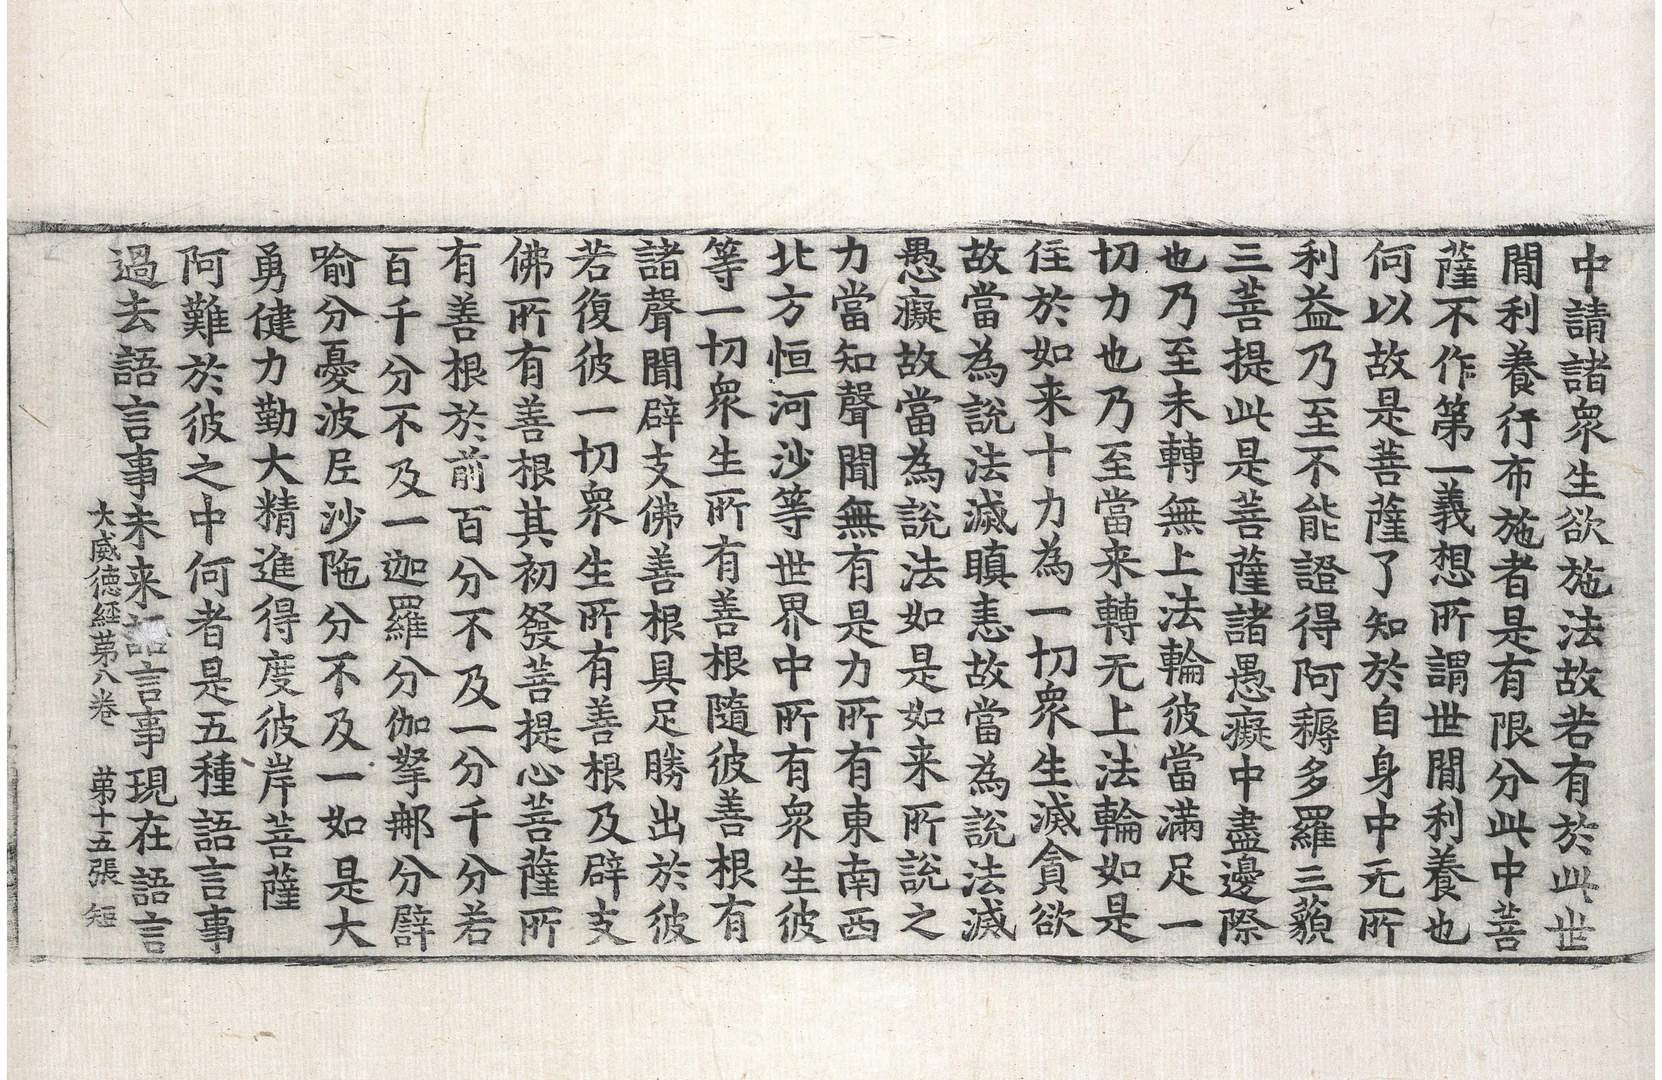 中請諸衆生欲施法故若有於此世
間利養行布施者是有限分此中菩
薩不作第一義想所謂世間利養也
何以故是菩薩了知於自身中无所
利益乃至不能證得阿耨多羅三藐
三菩提此是菩薩諸愚癡中盡邊際
也乃至未轉無上法輪彼當滿足一
切力也乃至當来轉无上法輪如是
住於如来十力為一切衆生滅貪欲
故當為說法滅瞋恚故當為說法滅
愚癡故當為說法如是如来所說之
力當知聲聞無有是力所有東南西
北方恒河沙等世界中所有衆生彼
等一切衆生所有善根隨彼善根有
諸聲聞辟支佛善根具足勝出於彼
若復彼一切衆生所有善根及辟支
佛所有善根其初發菩提心菩薩所
有善根於前百分不及一分千分若
百千分不及一迦羅分伽拏那分譬
喻分憂波尼沙陁分不及一如是大
勇健力勤大精進得度彼岸菩薩
阿難於彼之中何者是五種語言事
過去語言事未来語言事現在語言
大威德經第八卷　第十五張　短